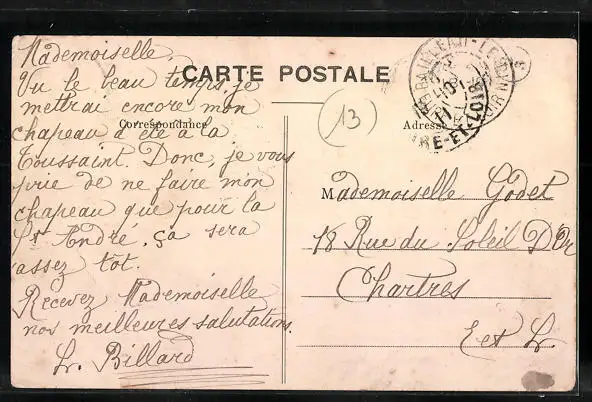 CARTE POSTALE
Correspondance
Adresse
Mademoiselle,
Vu le beau temps, je
mettrai encore mon
chapeau d'été à la
Toussaint. Donc, je vous
prie de ne faire mon
chapeau que pour la
St André, ça sera
assez tot.
Recevez Mademoiselle
nos meilleures salutations.
L. Billard
(13)
BAILLEAU-LE-PIN
EURE-ET-LOIR
Mademoiselle Godet
18 Rue du Soleil D'Or
Chartres
E et L.